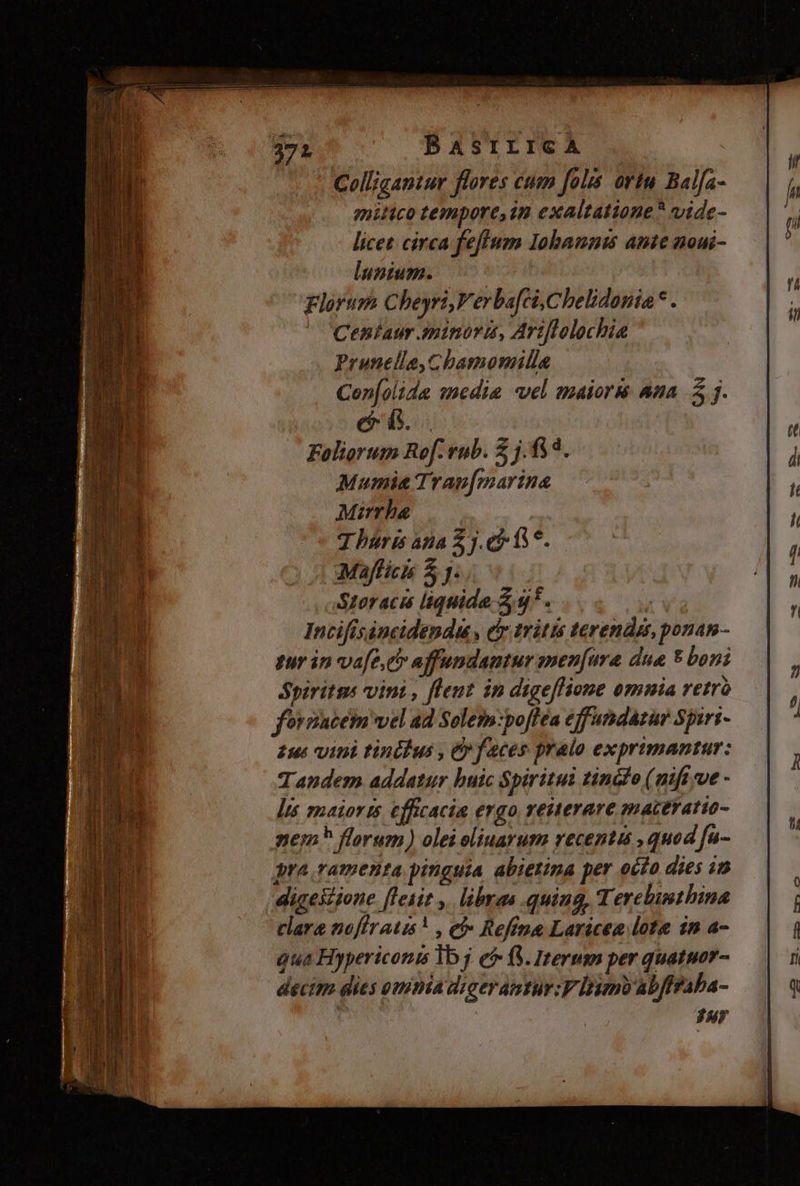 372 BASILICA
Colligantur flores cum solis ortu Balsa-
mitico tempore, in exaltatione ᵃ vide-
licet circa festum Iohannis ante noui-
lunium.
Florum Cheyri, Verbasci, Chelidoniæ ᶜ.
Centaur. minoris, Aristolochiæ
Prunellæ, Chamomillæ
Consolidæ mediæ vel maioris ana ℥ j.
& ß.
Foliorum Ros. rub. ℥ j. ß ᵈ.
Mumiæ Transmarinæ
Mirrhæ
Thuris ana ℥ j. & ß ᵉ.
Mastichis ℥ j.
Storacis liquidæ ℥ ij ᶠ.
Incisis incidendis, & tritis terendis, ponan-
tur in vase, & affundantur mensuræ duæ ᵍ boni
Spiritus vini, stent in digestione omnia retrò
fornacem vel ad Solem: postea effundatur Spiri-
tus vini tinctus, & fæces prælo exprimantur:
Tandem addatur huic Spiritui tincto (nisi ve-
lis maioris efficaciæ ergo reiterare maceratio-
nem ʰ florum) olei oliuarum recentis, quod su-
pra ramenta pinguia abietina per octo dies in
digestione stetit, libras quinq, Terebinthinæ
claræ nostratis ⁱ, & Resinæ Lariceæ lotæ in a-
qua Hypericonis ℔ j & ß. Iterum per quatuor-
decim dies omnia digerantur: Vltimò abstraha-
tur